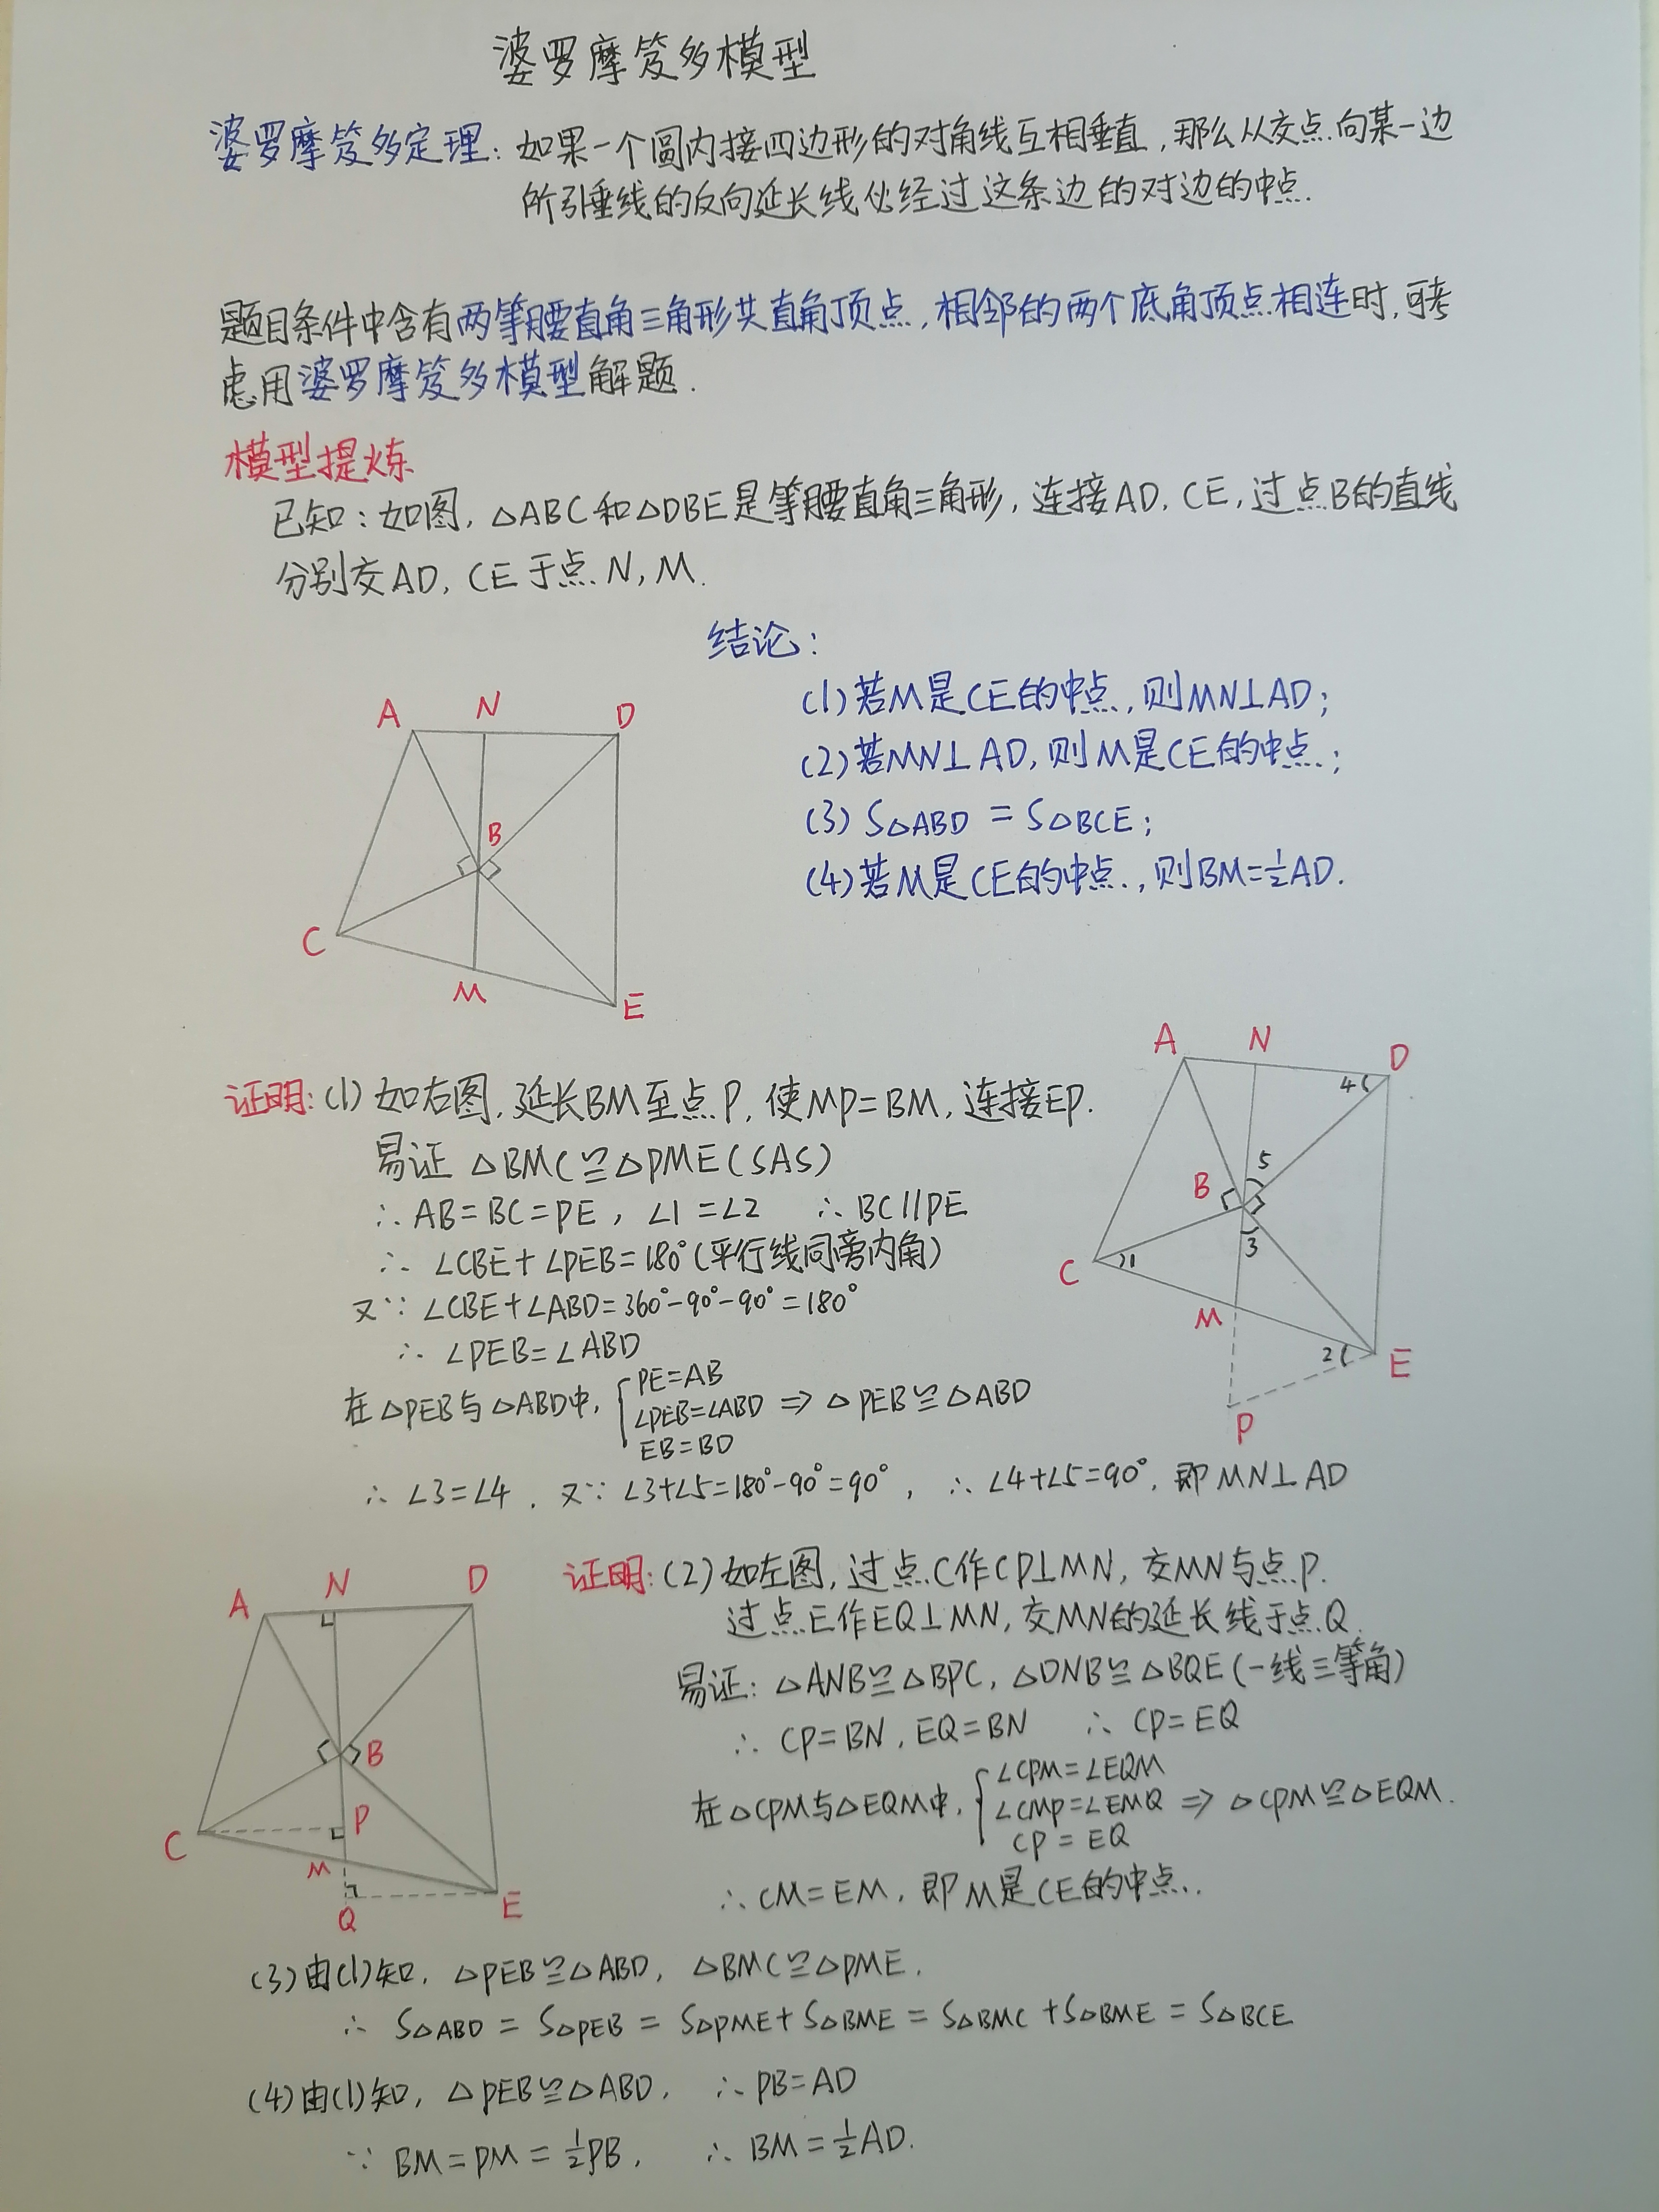 婆罗摩笈多模型
婆罗摩笈多定理：如果一个圆内接四边形的对角线互相垂直，那么从交点向某一边
所引垂线的反向延长线必经过这条边的对边的中点.
题目条件中含有两等腰直角三角形共直角顶点，相邻的两个底角顶点相连时，可考
虑用婆罗摩笈多模型解题.
模型提炼
已知：如图，△ABC和△DBE是等腰直角三角形，连接AD，CE，过点B的直线
分别交AD，CE于点N，M.
结论：
(1)若M是CE的中点，则MN⊥AD；
(2)若MN⊥AD，则M是CE的中点；
(3) S△ABD = S△BCE；
(4)若M是CE的中点，则BM=½AD.
A N D
B
C
M
E
A N D
4
5
B
3
C 1
M
2 E
P
证明：(1)如右图，延长BM至点P，使MP=BM，连接EP.
易证 △BMC≌△PME(SAS)
∴ AB=BC=PE，∠1=∠2 ∴ BC∥PE
∴ ∠CBE+∠PEB=180°(平行线同旁内角)
又∵ ∠CBE+∠ABD=360°-90°-90°=180°
∴ ∠PEB=∠ABD
PE=AB
在△PEB与△ABD中，{∠PEB=∠ABD ⇒ △PEB≌△ABD
EB=BD
∴ ∠3=∠4，又∵ ∠3+∠5=180°-90°=90°，∴ ∠4+∠5=90°，即MN⊥AD
A N D
B
P
C
M
Q
E
证明：(2)如左图，过点C作CP⊥MN，交MN与点P.
过点E作EQ⊥MN，交MN的延长线于点Q.
易证：△ANB≌△BPC，△DNB≌△BQE(一线三等角)
∴ CP=BN，EQ=BN ∴ CP=EQ
∠CPM=∠EQM
在△CPM与△EQM中，{∠CMP=∠EMQ ⇒ △CPM≌△EQM.
CP=EQ
∴ CM=EM，即M是CE的中点.
(3)由(1)知，△PEB≌△ABD，△BMC≌△PME.
∴ S△ABD = S△PEB = S△PME+S△BME = S△BMC+S△BME = S△BCE
(4)由(1)知，△PEB≌△ABD，∴ PB=AD
∵ BM=PM=½PB，∴ BM=½AD.